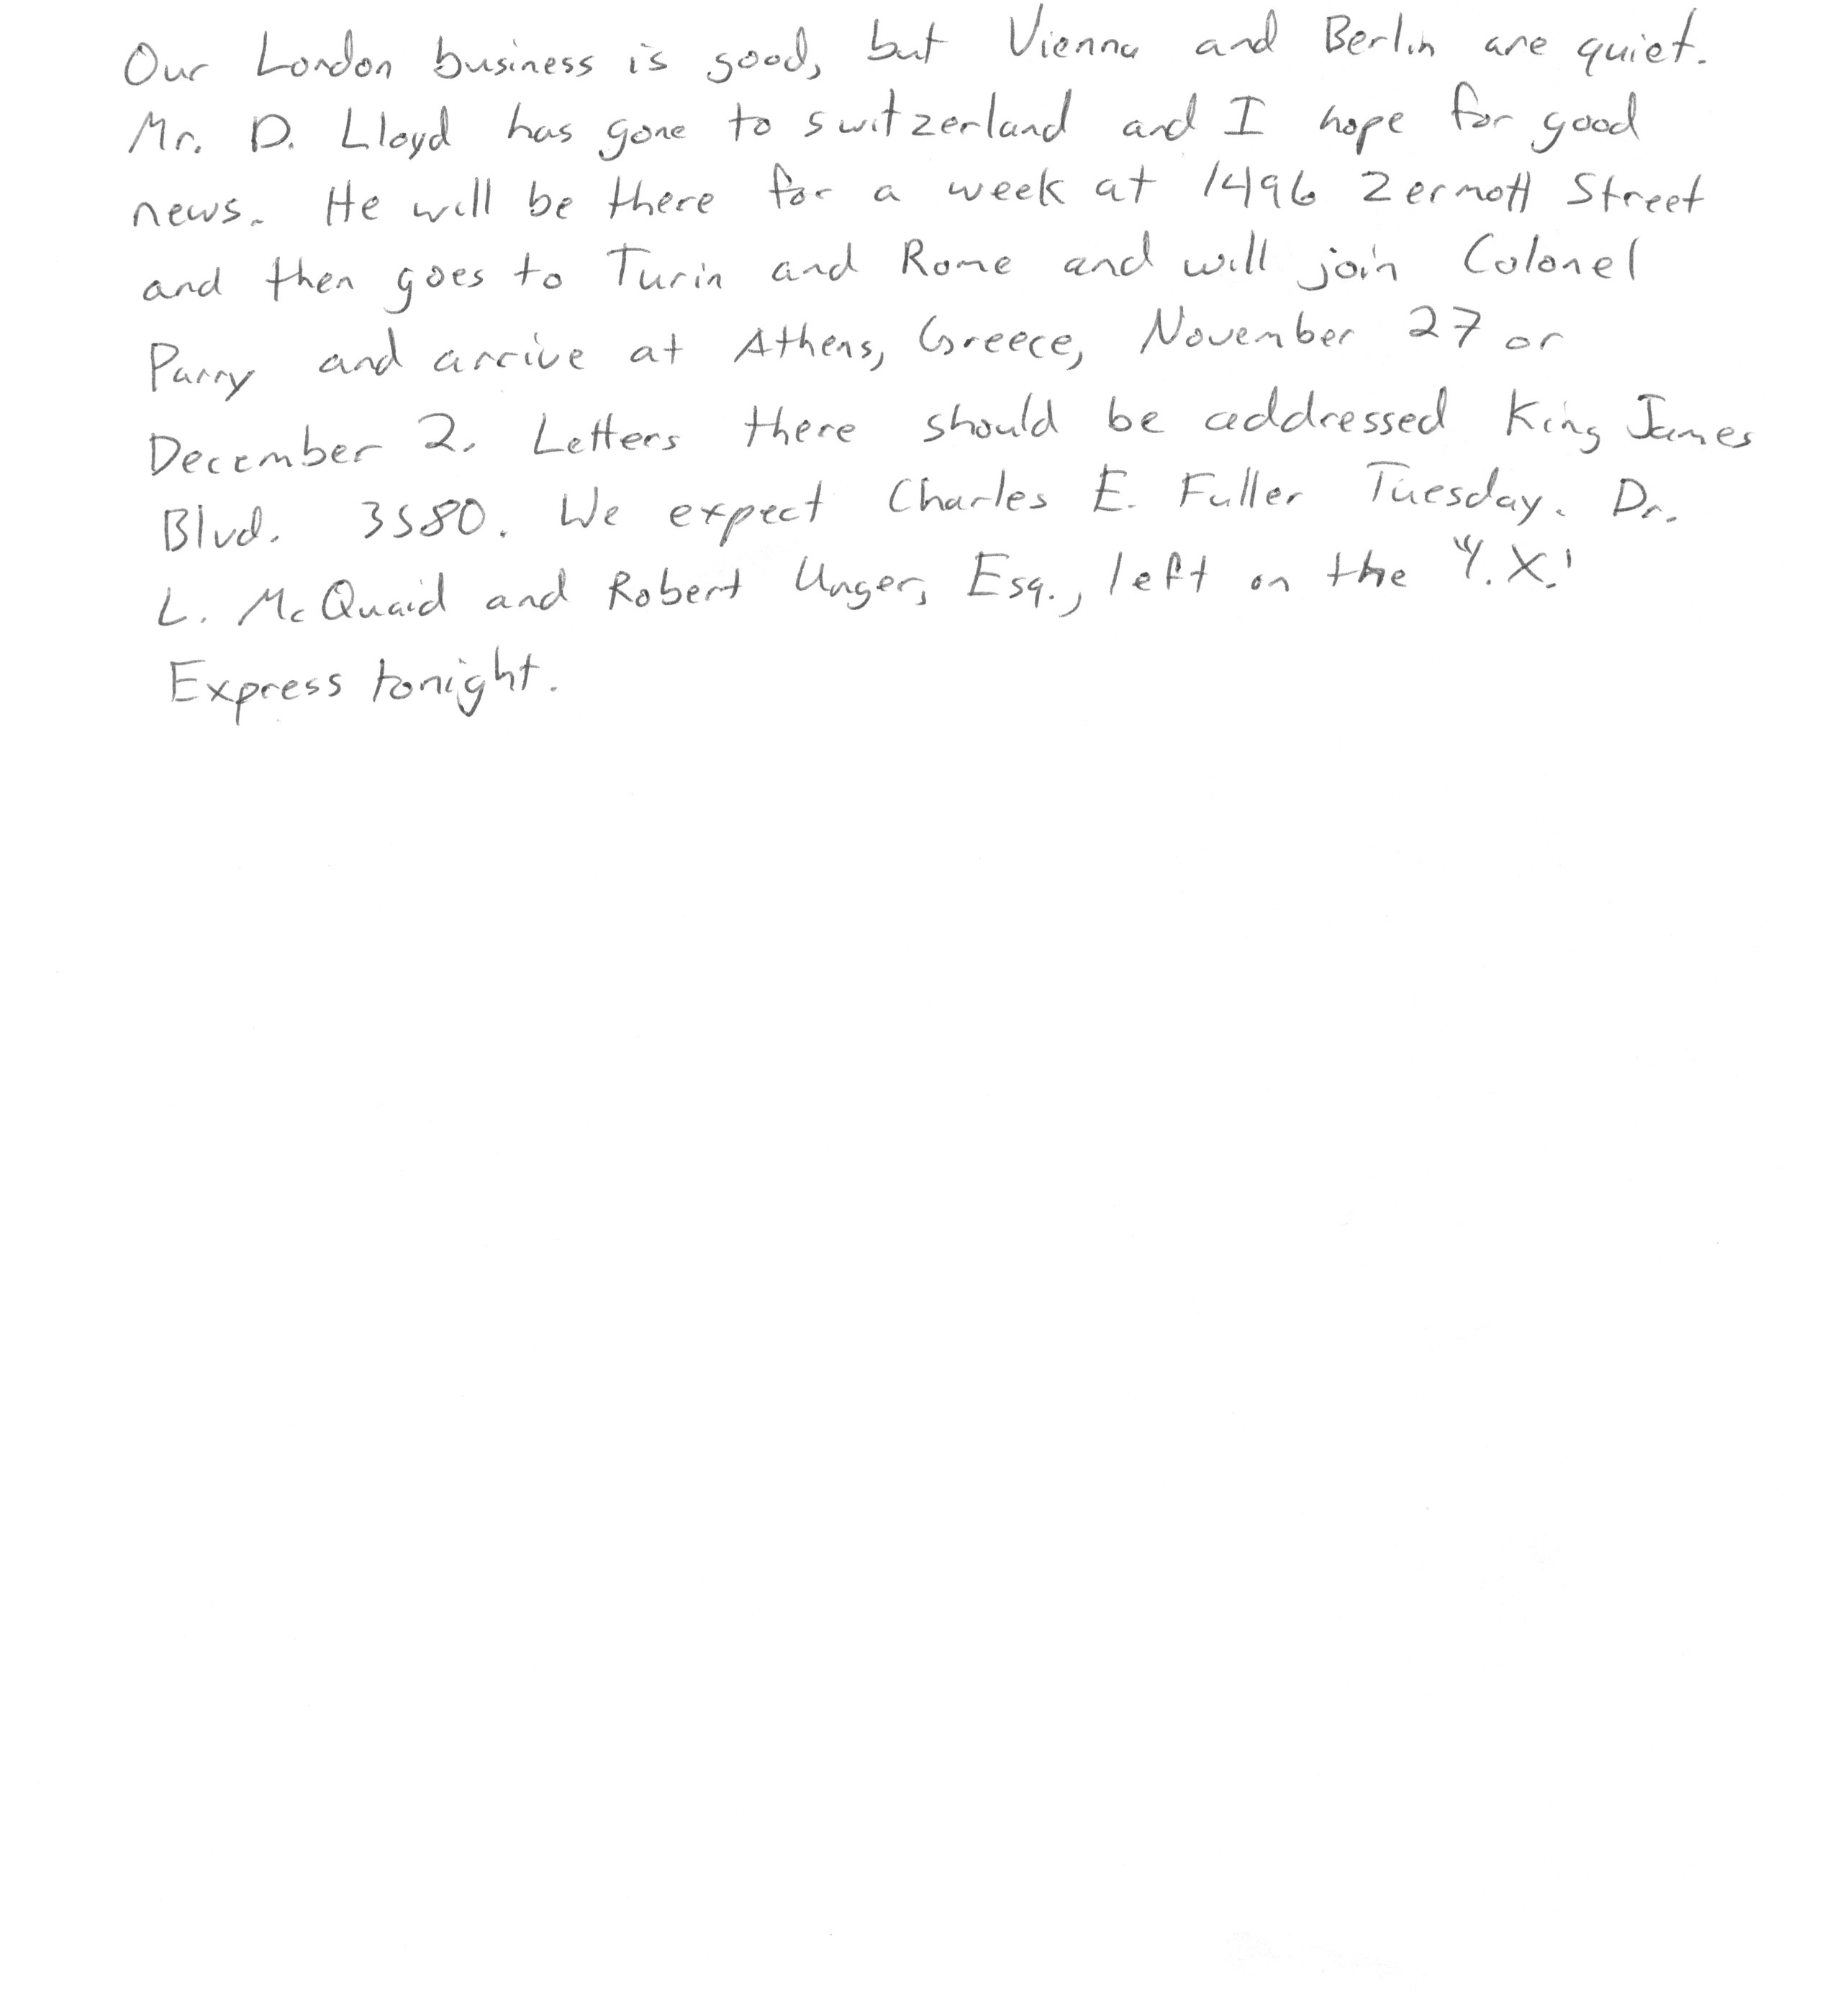 Our London business is good, but Vienna and Berlin are quiet.
Mr. D. Lloyd has gone to switzerland and I hope for good
news. He will be there for a week at 1496 Zermott Street
and then goes to Turin and Rome and will join Colonel
Parry and arrive at Athens, Greece, November 27 or
December 2. Letters there should be addressed King James
Blvd. 3580. We expect Charles E. Fuller Tuesday. Dr.
L. McQuaid and Robert Unger, Esq., left on the "Y.X."
Express tonight.